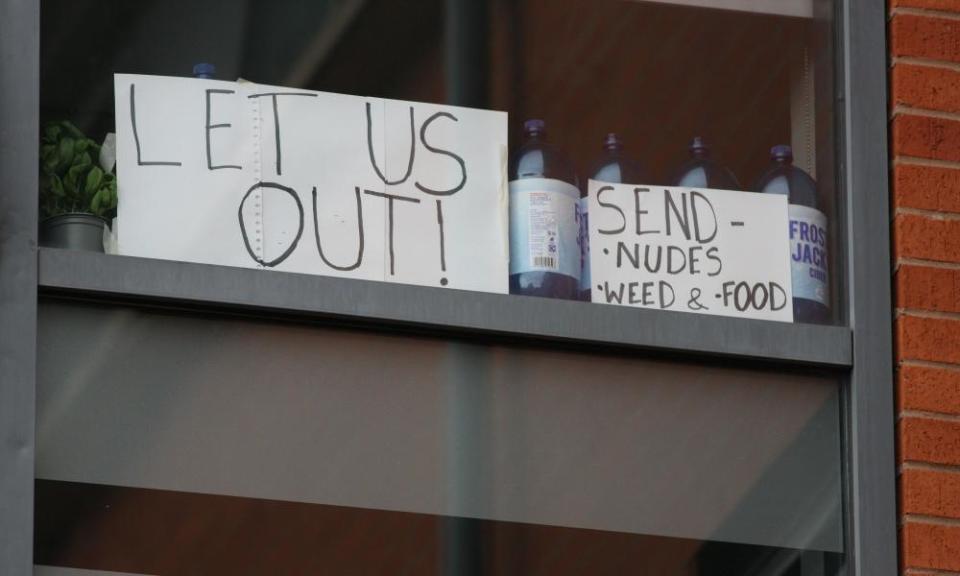 LET US
OUT!
SEND-
·NUDES
·WEED & ·FOOD
FROS
JACK